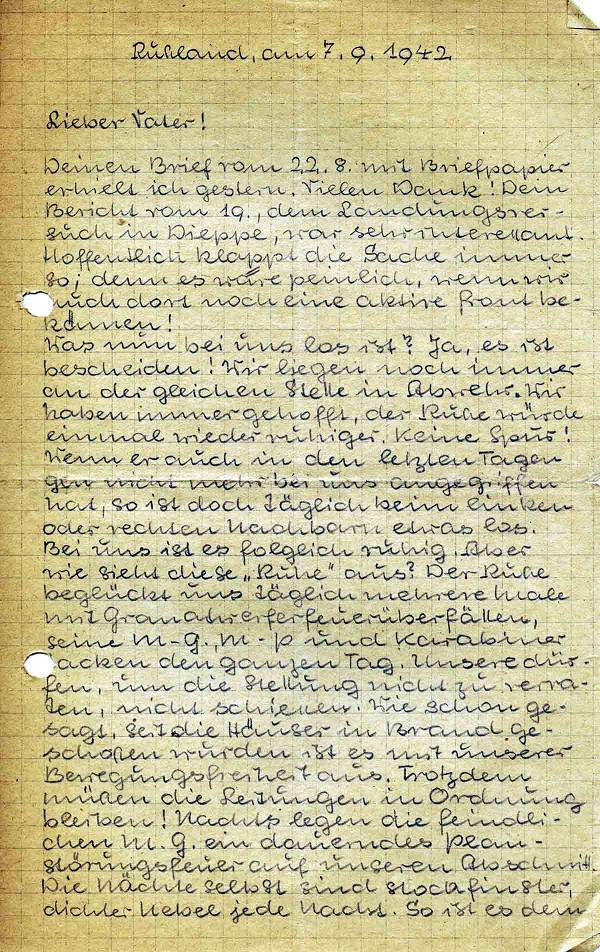 Rußland, am 7. 9. 1942
Lieber Vater!
Deinen Brief vom 22. 8. mit Briefpapier
erhielt ich gestern. Vielen Dank! Dein
Bericht vom 19., dem Landungsver-
such in Dieppe, war sehr interessant.
Hoffentlich klappt die Sache immer
so; denn es wäre peinlich, wenn wir
auch dort noch eine aktive Front be-
kämen!
Was nun bei uns los ist? Ja, es ist
bescheiden! Wir liegen noch immer
an der gleichen Stelle in Abwehr. Wir
haben immer gehofft, der Ruße würde
einmal wieder ruhiger. Keine Spur!
Wenn er auch in den letzten Tagen
gen nicht mehr bei uns angegriffen
hat, so ist doch täglich beim linken
oder rechten Nachbarn etwas los.
Bei uns ist es folglich ruhig. Aber
wie sieht diese „Ruhe" aus? Der Ruße
beglückt uns täglich mehrere Male
mit Granatwerferfeuerüberfällen,
seine M-G., M-P und Karabiner
acken den ganzen Tag. Unsere dür-
fen, um die Stellung nicht zu verra-
ten, nicht schießen. Wie schon ge-
sagt, seit die Häuser in Brand ge-
schoßen wurden ist es mit unserer
Bewegungsfreiheit aus. Trotzdem
müßen die Leitungen in Ordnung
bleiben! Nachts legen die feindli-
chen M. G. ein dauerndes plan-
störungsfeuer auf unseren Abschnitt.
Die Nächte selbst sind stockfinster,
dichter Nebel jede Nacht. So ist es dem